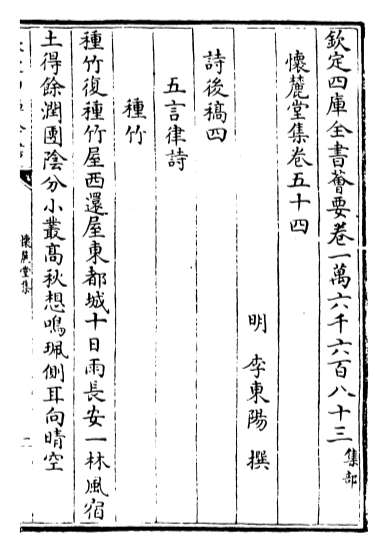 欽定四庫全書薈要卷一萬六千六百八十三
集部
懷麓堂集卷五十四
明 李東陽 撰
詩後稿四
五言律詩
種竹
種竹復種竹屋西還屋東都城十日雨長安一林風宿
土得餘潤團陰分小叢高秋想鳴珮側耳向晴空
懷麓堂集